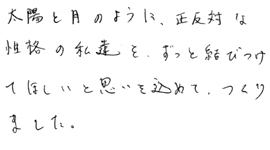 太陽と月のように、正反対な
性格の私達を、ずっと結びつけ
てほしいと思いを込めて、つくり
ました。